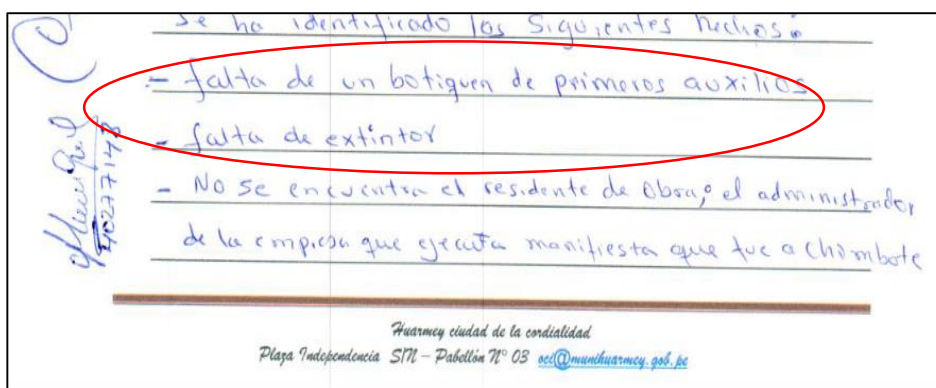 Se ha identificado los Siguientes hechos:
- falta de un botiquen de primeros auxilios
- falta de extintor
- No se encuentra el residente de Obra, el administrador
de la empresa que ejecuta manifiesta que fue a Chimbote
40277148
Huarmey ciudad de la cordialidad
Plaza Independencia S/N – Pabellón N° 03 occ@munihuarmey.gob.pe